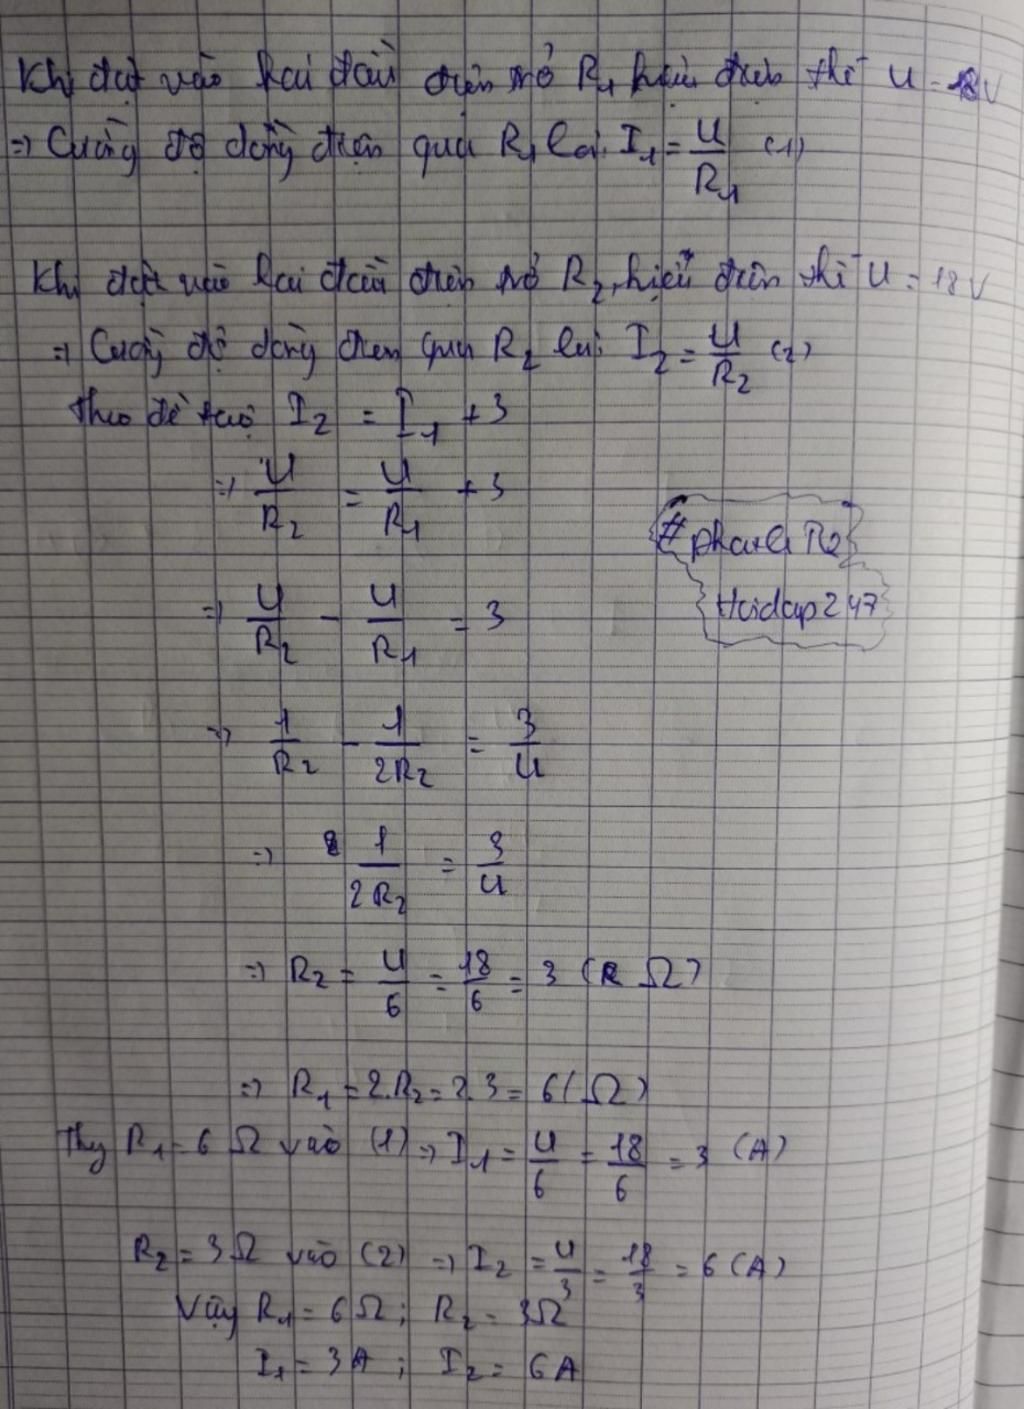 Khi đặt vào hai đầu điện trở R₁ hiệu điện thế U = 18V
=> Cường độ dòng điện qua R₁ là: I₁ = U/R₁ (1)
Khi đặt vào hai đầu điện trở R₂, hiệu điện thế U = 18V
=> Cường độ dòng điện qua R₂ là: I₂ = U/R₂ (2)
Theo đề I₂ = I₁ + 3
=> U/R₂ = U/R₁ + 3
#phaela
=> U/R₂ - U/R₁ = 3
Hoidap247
=> 1/R₂ - 1/2R₂ = 3/U
=> 1/2R₂ = 3/U
=> R₂ = U/6 = 18/6 = 3 (Ω)
=> R₁ = 2.R₂ = 2.3 = 6 (Ω)
Thay R₁ = 6 Ω vào (1) => I₁ = U/6 = 18/6 = 3 (A)
R₂ = 3Ω vào (2) => I₂ = U/3 = 18/3 = 6 (A)
Vậy R₁ = 6Ω ; R₂ = 3Ω
I₁ = 3A ; I₂ = 6A